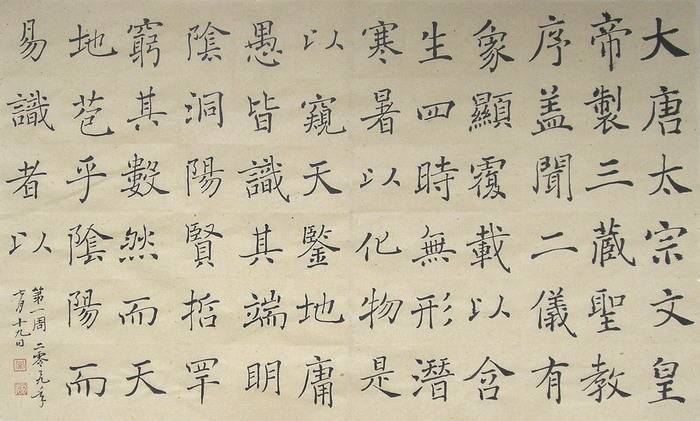 大唐太宗文皇
帝製三藏聖教
序盖聞二儀有
象顯覆載以含
生四時無形潛
寒暑以化物是
以窺天鑒地庸
愚皆識其端明
陰洞陽賢哲罕
窮其數然而天
地苞乎陰陽而
易識者以
第一周 二零一九年
七月十九日